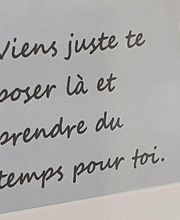 Viens juste te
poser là et
prendre du
temps pour toi.